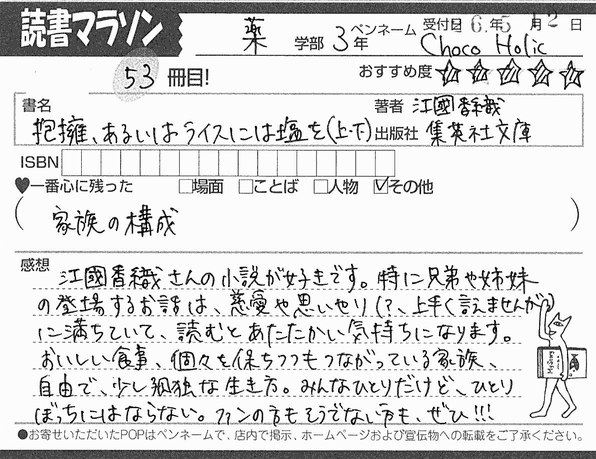 読書マラソン
薬 学部 3年 ペンネーム Choco Holic 受付日 26年5月12日
53冊目!
おすすめ度 ☆☆☆☆☆
書名 抱擁、あるいはライスには塩を(上・下)
著者 江國香織
出版社 集英社文庫
ISBN
♥一番心に残った □場面 □ことば □人物 ☑その他
(家族の構成)
感想
江國香織さんの小説が好きです。特に兄弟や姉妹
の登場するお話は、慈愛や思いやり(?、上手く言えませんが)
に満ちていて、読むとあたたかい気持ちになります。
おいしい食事、個々を保ちつつもつながっている家族、
自由で、少し孤独な生き方。みんなひとりだけど、ひとり
ぼっちにはならない。ファンの方もそうでない方も、ぜひ!!!
●お寄せいただいたPOPはペンネームで、店内で掲示、ホームページおよび宣伝物への転載をご了承ください。